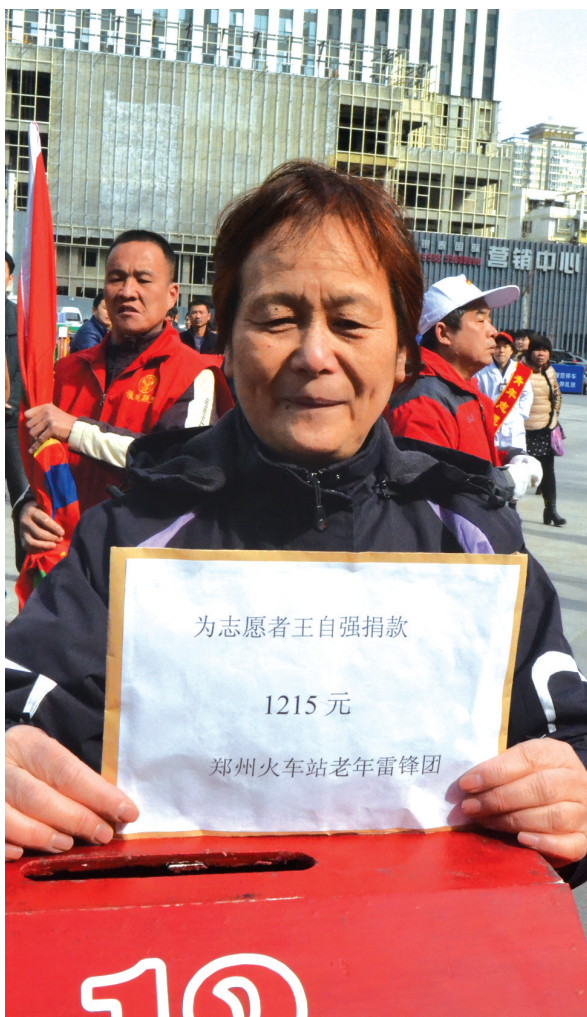 营销中心
青年志愿
为志愿者王自强捐款
1215 元
郑州火车站老年雷锋团